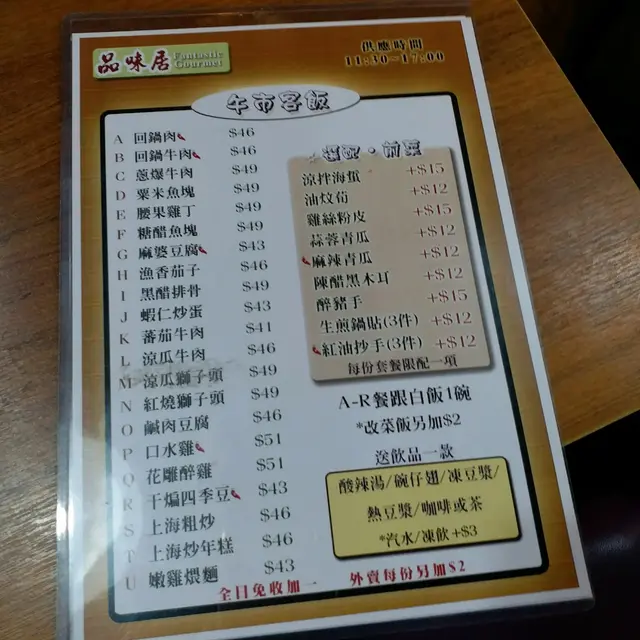 品味居 Fantastic Gourmet
供應時間
11:30~17:00
午市客飯
A 回鍋肉 $46
B 回鍋牛肉 $46
C 蔥爆牛肉 $49
D 粟米魚塊 $49
E 腰果雞丁 $49
F 糖醋魚塊 $49
G 麻婆豆腐 $43
H 漁香茄子 $46
I 黑醋排骨 $49
J 蝦仁炒蛋 $43
K 蕃茄牛肉 $41
L 涼瓜牛肉 $46
M 涼瓜獅子頭 $49
N 紅燒獅子頭 $49
O 鹹肉豆腐 $46
P 口水雞 $51
Q 花雕醉雞 $51
R 干煸四季豆 $43
S 上海粗炒 $46
T 上海炒年糕 $46
U 嫩雞煨麵 $43
選配・前菜
涼拌海蜇 +$15
油炆筍 +$12
雞絲粉皮 +$15
蒜蓉青瓜 +$12
麻辣青瓜 +$12
陳醋黑木耳 +$12
醉豬手 +$15
生煎鍋貼(3件) +$12
紅油抄手(3件) +$12
每份套餐限配一項
A-R餐跟白飯1碗
*改菜飯另加$2
送飲品一款
酸辣湯/碗仔翅/凍豆漿/
熱豆漿/咖啡或茶
*汽水/凍飲+$3
全日免收加一 外賣每份另加$2